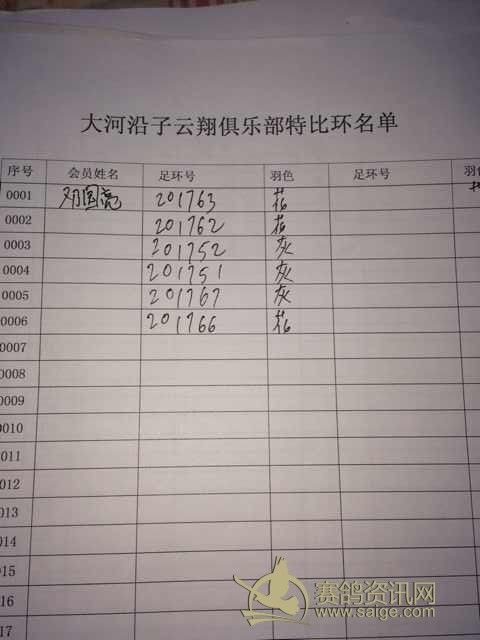 大河沿子云翔俱乐部特比环名单
序号 会员姓名 足环号 羽色 足环号 羽色
0001 邓国亮 201763 花
0002 201762 花
0003 201752 灰
0004 201751 灰
0005 201767 灰
0006 201766 花
0007
0008
0009
0010
0011
0012
013
014
015
16
17
赛鸽资讯网
www.saige.com